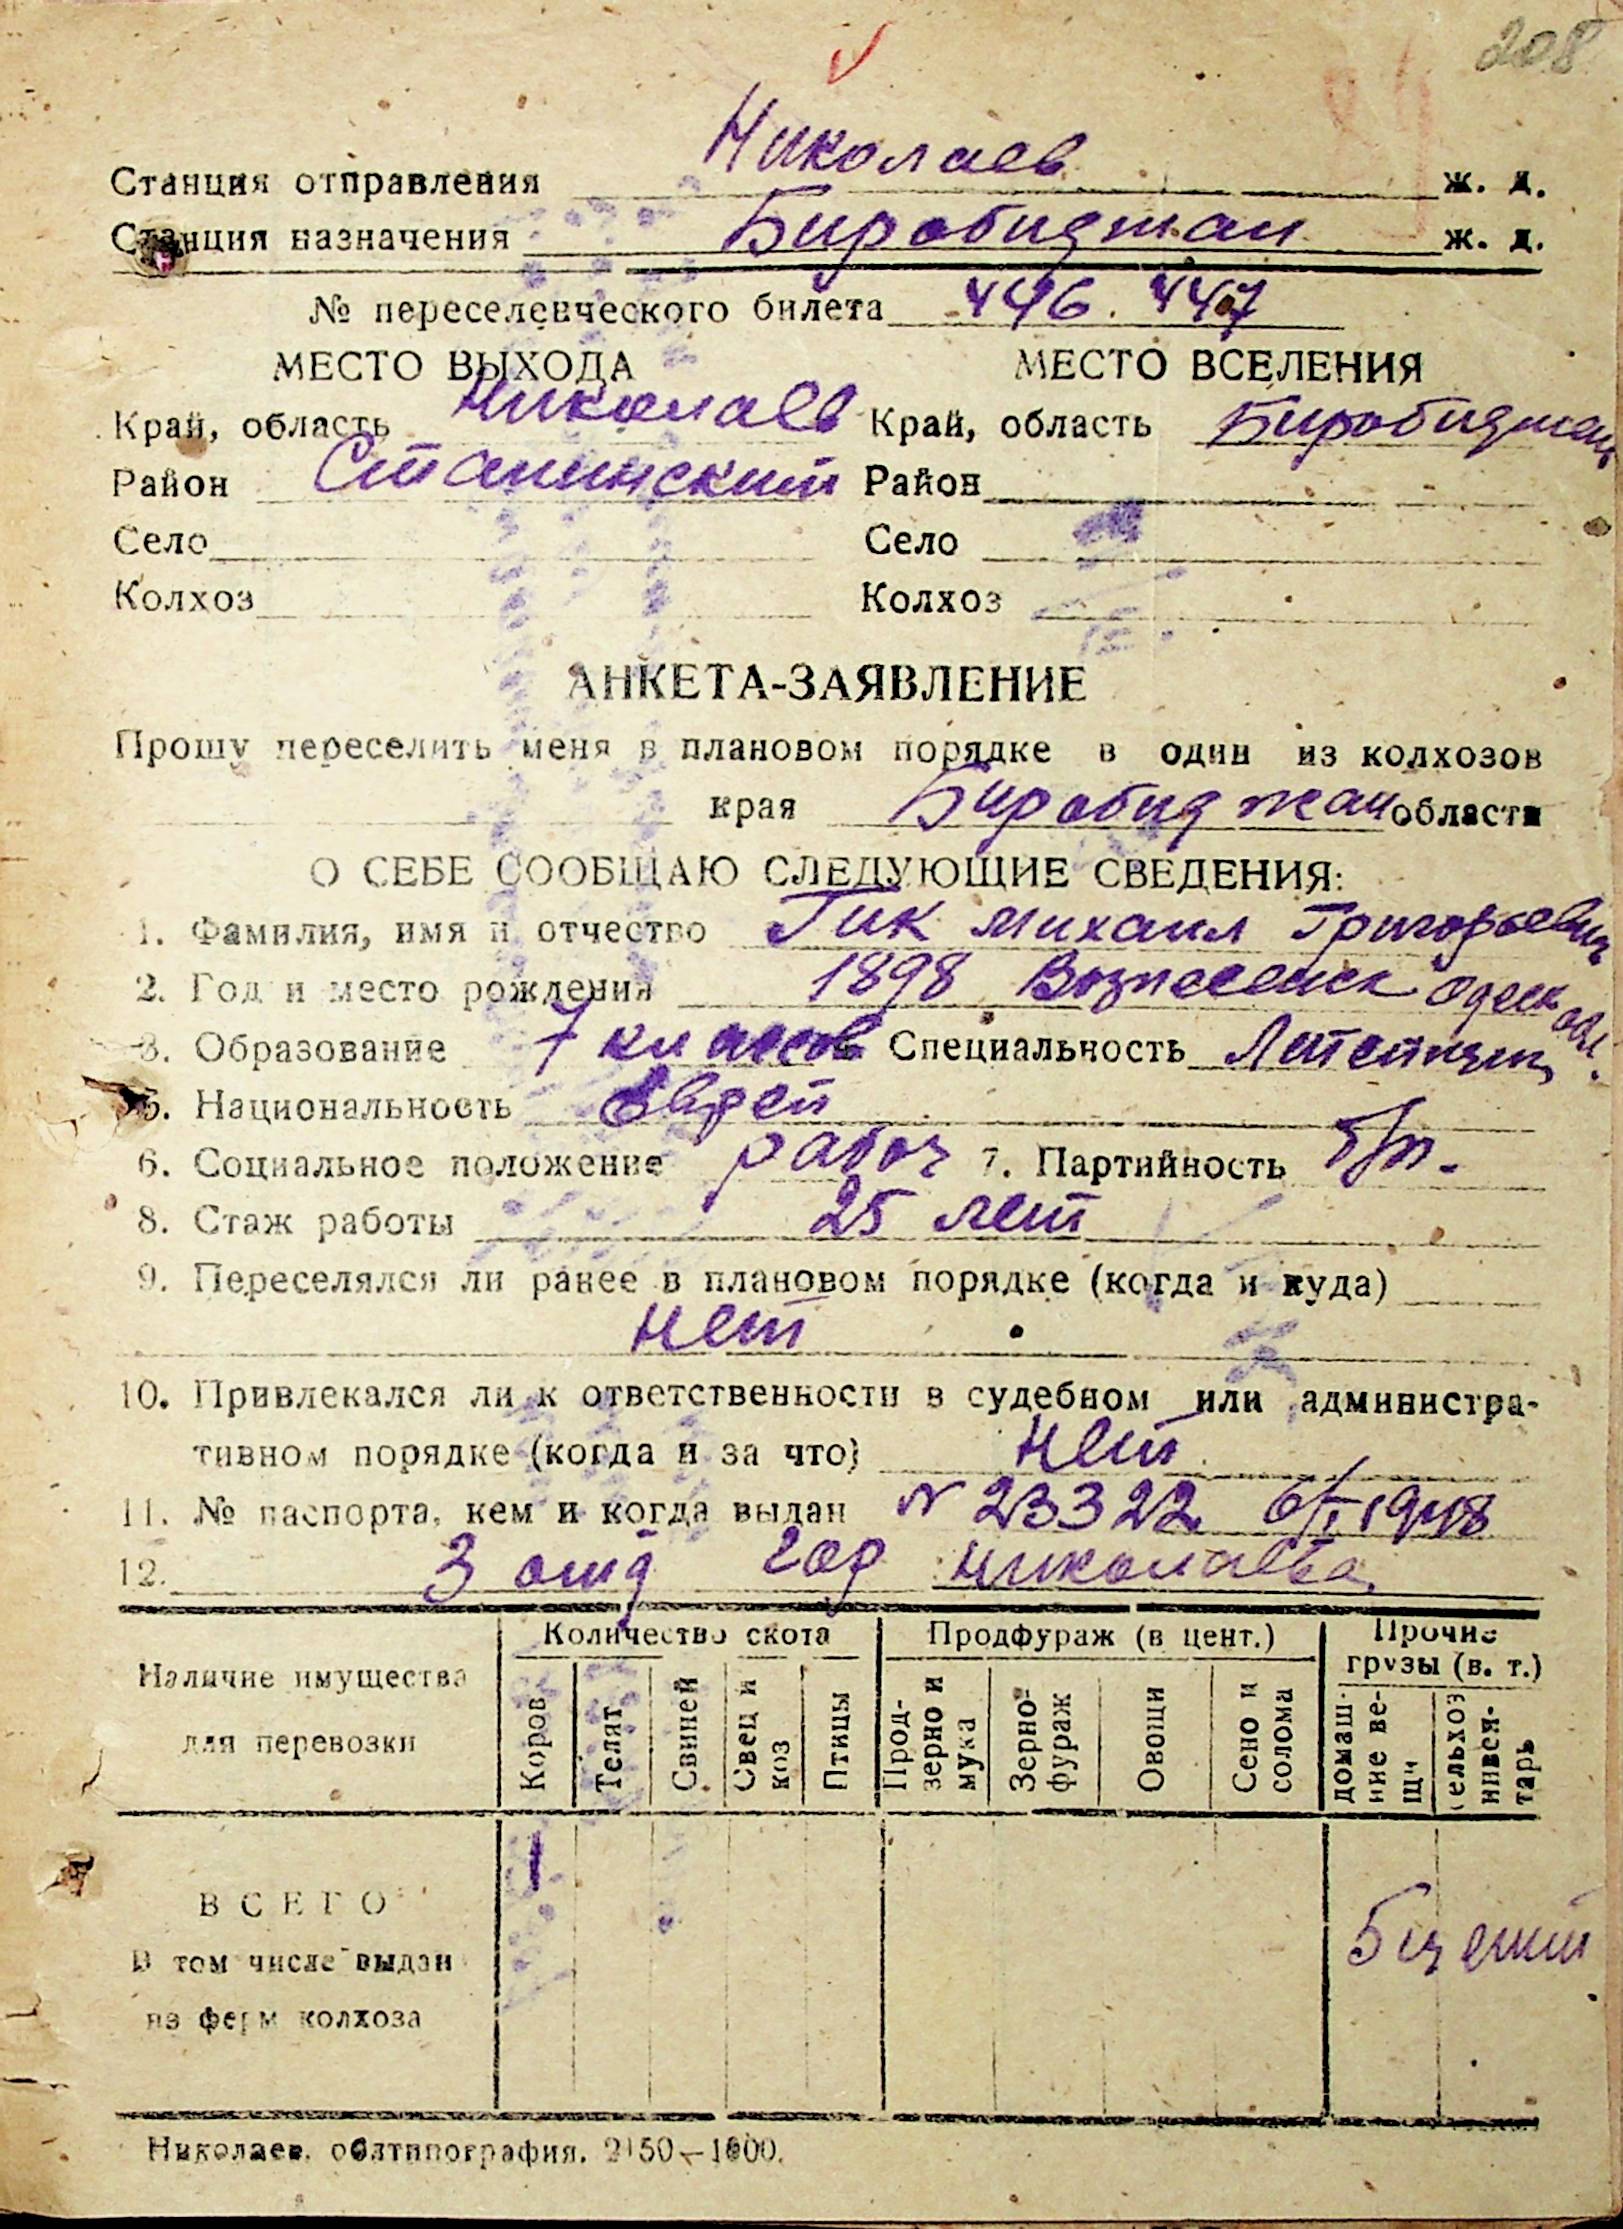 208
Станция отправления Николаев ж. д.
Станция назначения Биробиджан ж. д.
№ переселенческого билета 446. 447
МЕСТО ВЫХОДА МЕСТО ВСЕЛЕНИЯ
Край, область Николаев Край, область Биробиджан
Район Сталинский Район
Село Село
Колхоз Колхоз
АНКЕТА-ЗАЯВЛЕНИЕ
Прошу переселить меня в плановом порядке в один из колхозов
края Биробиджан области
О СЕБЕ СООБЩАЮ СЛЕДУЮЩИЕ СВЕДЕНИЯ:
1. Фамилия, имя и отчество Гик Михаил Григорьевич
2. Год и место рождения 1898 Вознесенск Одеск обл.
3. Образование 7 классов Специальность Литейщик
5. Национальность Еврей
6. Социальное положение рабоч 7. Партийность б/п.
8. Стаж работы 25 лет
9. Переселялся ли ранее в плановом порядке (когда и куда)
нет
10. Привлекался ли к ответственности в судебном или администра-
тивном порядке (когда и за что) нет
11. № паспорта, кем и когда выдан N 23322 6/I 1948
12. 3 отд гор Николаева
Наличие имущества для перевозки
Количество скота Продфураж (в цент.) Прочие грузы (в. т.)
Коров Телят Свиней Овец и коз Птицы Прод-зерно и мука Зерно-фураж Овощи Сено и солома домаш-ние ве-щи сельхоз инвен-тарь
ВСЕГО 1
В том числе выдан
из ферм колхоза
Николаев, облтипография. 2150—1000.